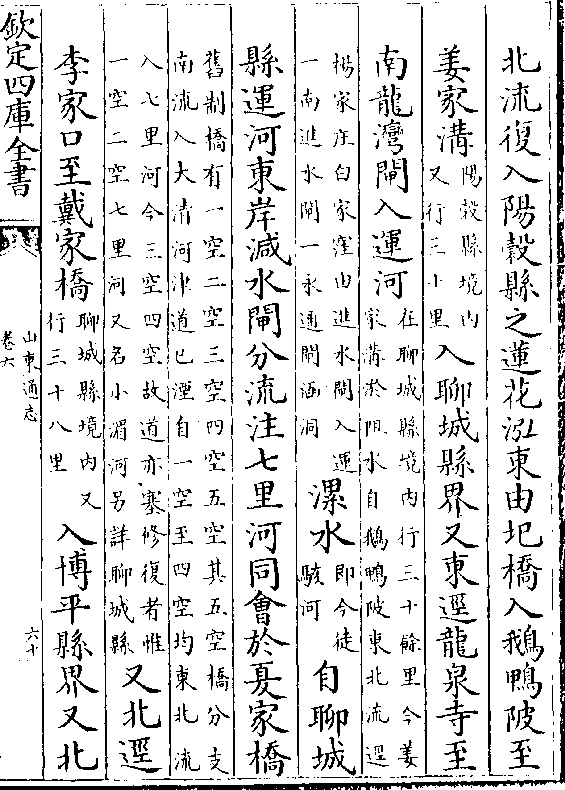 北流復入陽穀縣之蓮花泓東由圯橋入鵝鴨陂至
姜家溝陽穀縣境内又行三十里入聊城縣界又東逕龍泉寺至
南龍灣閘入運河在聊城縣境内行三十餘里今姜家溝淤阻水自鵝鴨陂東北流逕
楊家庄白家窪由進水閘入運一南進水閘一永通閘涵洞漯水即今徒駭河自聊城
縣運河東岸減水閘分流注七里河同會於夏家橋
舊制橋有一空二空三空四空五空其五空橋分支南流入大清河津道已湮自一空至四空均東北流
入七里河今三空四空故道亦塞修復者惟一空二空七里河又名小湄河另詳聊城縣又北逕
李家口至戴家橋聊城縣境内又行三十八里入博平縣界又北
欽定四庫全書
山東通志
卷六
六十